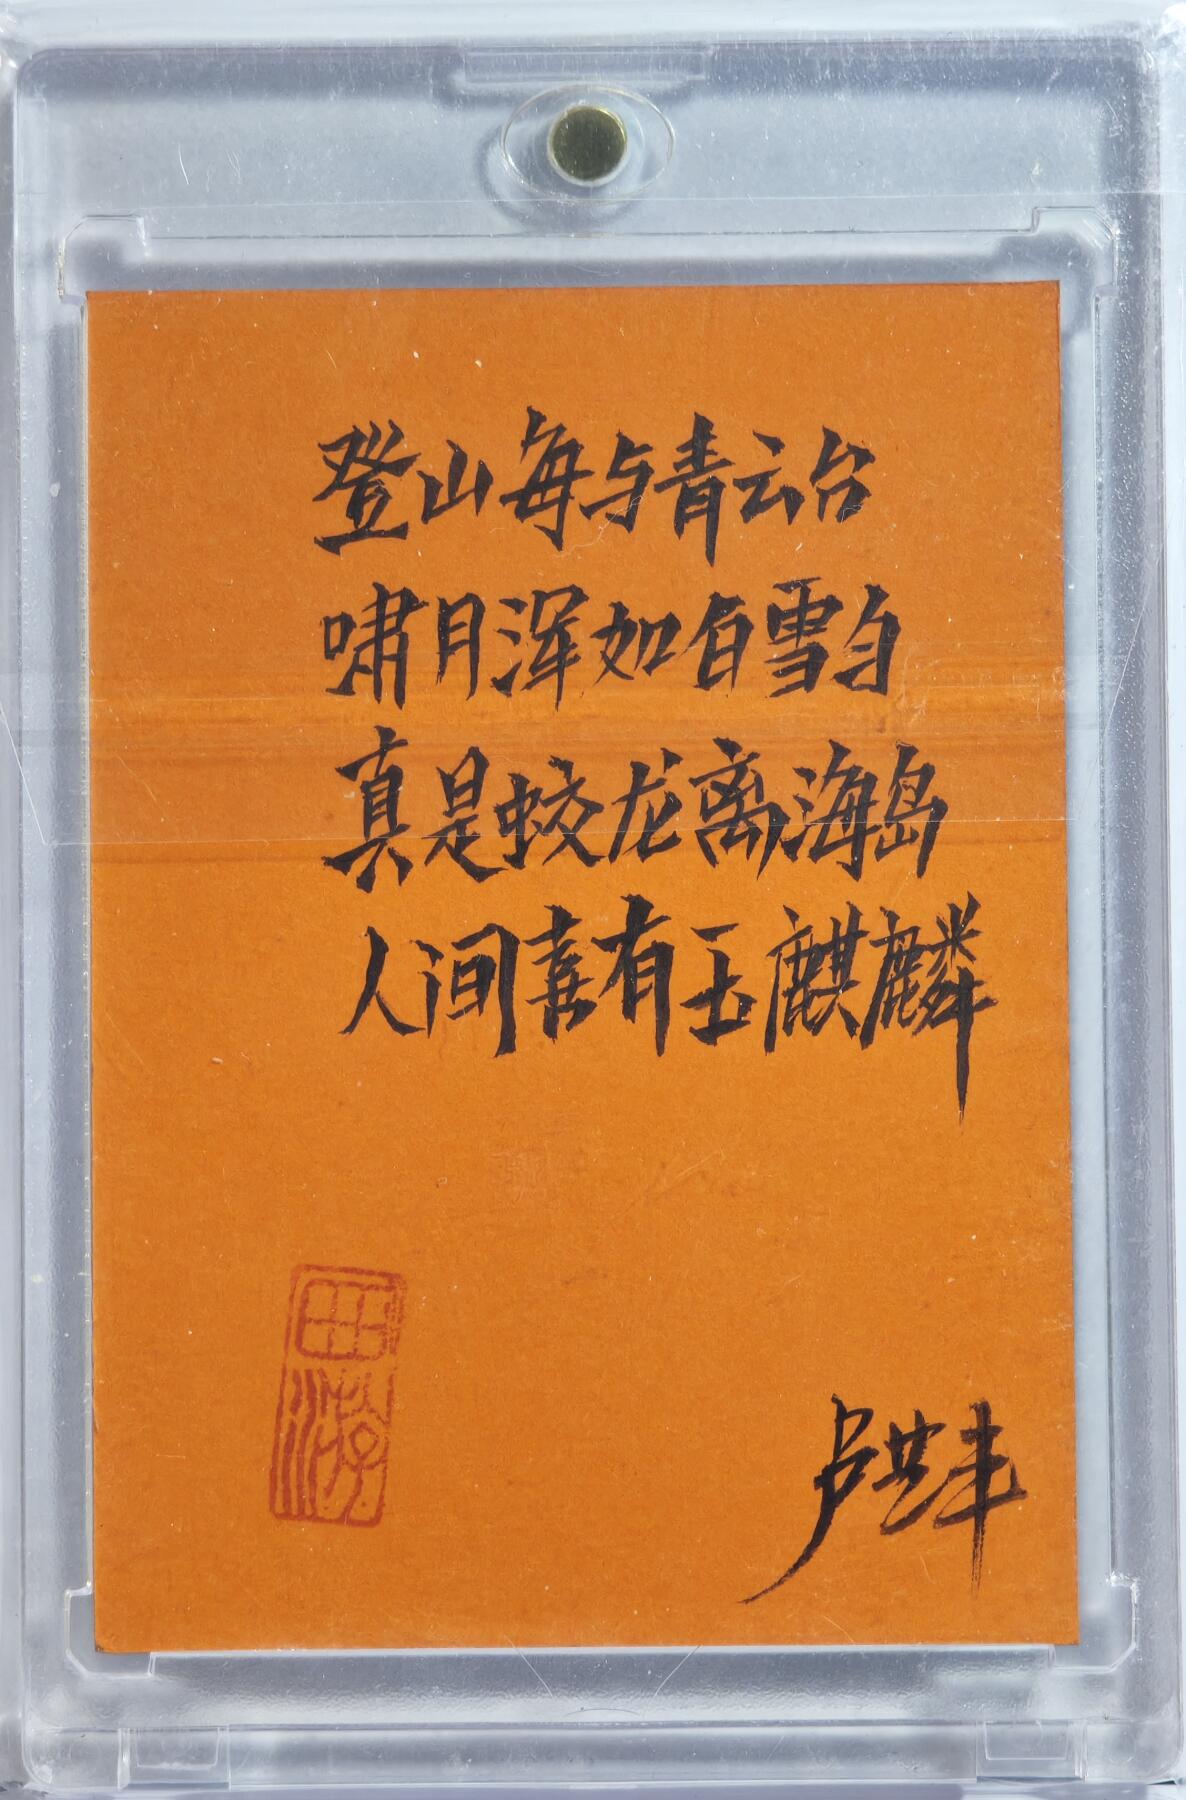 登山每与青云台
啸月浑如白雪自
真是蛟龙离海岛
人间喜有玉麒麟
田游
卢洪丰